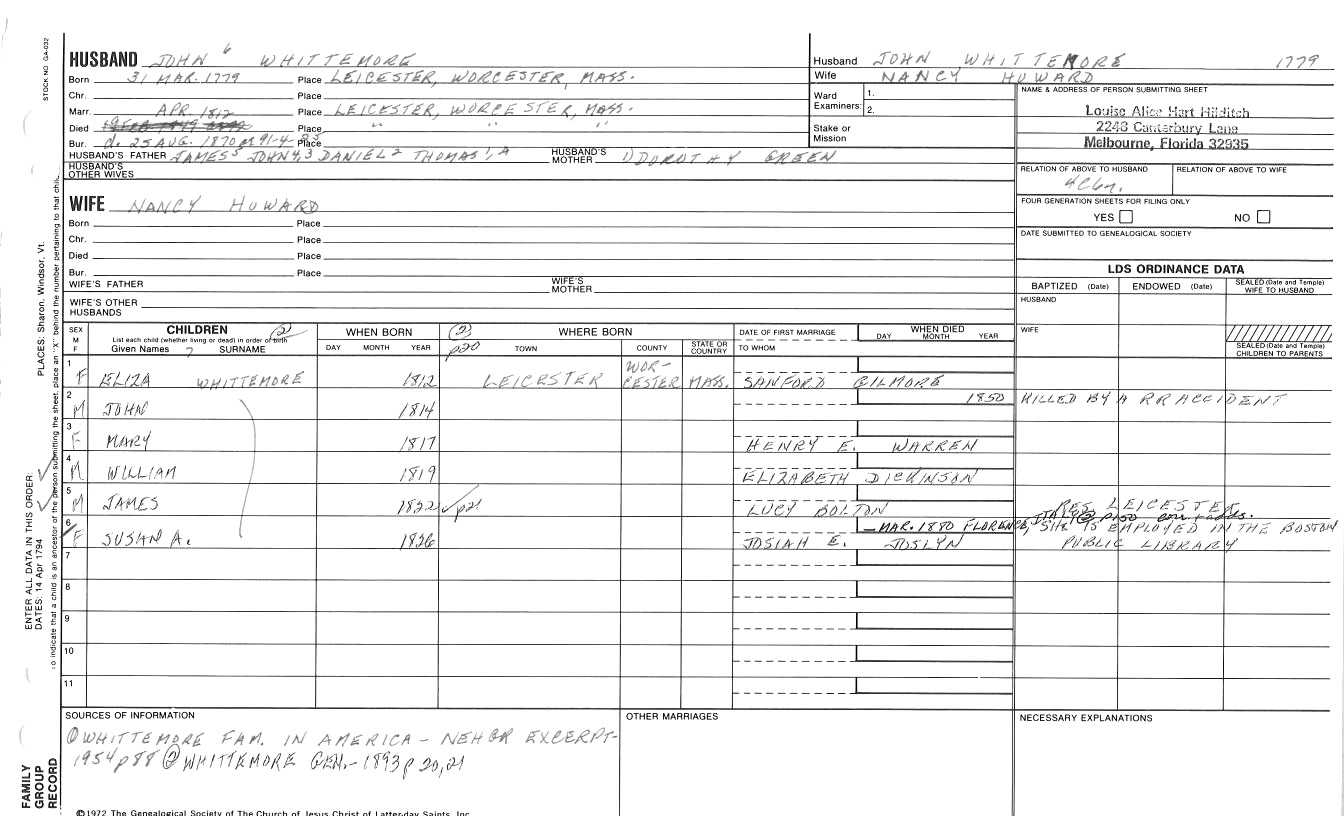 STOCK NO. GA-032
HUSBAND JOHN 6 WHITTEMORE
Born 31 MAR. 1779 Place LEICESTER, WORCESTER, MASS.
Chr. Place
Marr. APR. 1812 Place LEICESTER, WORCESTER, MASS.
Died Place " "
Bur. d. 25 AUG. 1870 Place
HUSBAND'S FATHER JAMES 5 JOHN 4,3 DANIEL 2 THOMAS 1, A HUSBAND'S MOTHER 1) DOROTHY GREEN
HUSBAND'S OTHER WIVES
WIFE NANCY HOWARD
Born Place
Chr. Place
Died Place
Bur. Place
WIFE'S FATHER WIFE'S MOTHER
WIFE'S OTHER HUSBANDS
Husband JOHN WHITTEMORE 1779
Wife NANCY HOWARD
Ward Examiners: 1. 2.
Stake or Mission
NAME & ADDRESS OF PERSON SUBMITTING SHEET
Louise Alice Hart Hilditch
2248 Canterbury Lane
Melbourne, Florida 32935
RELATION OF ABOVE TO HUSBAND RELATION OF ABOVE TO WIFE
FOUR GENERATION SHEETS FOR FILING ONLY
YES NO
DATE SUBMITTED TO GENEALOGICAL SOCIETY
LDS ORDINANCE DATA
BAPTIZED (Date) ENDOWED (Date) SEALED (Date and Temple) WIFE TO HUSBAND
HUSBAND
WIFE
SEALED (Date and Temple) CHILDREN TO PARENTS
SEX M F CHILDREN (2) WHEN BORN (2) WHERE BORN DATE OF FIRST MARRIAGE WHEN DIED
List each child (whether living or dead) in order of birth
Given Names 7 SURNAME DAY MONTH YEAR p20 TOWN COUNTY STATE OR COUNTRY TO WHOM DAY MONTH YEAR
1 F ELIZA WHITTEMORE 1812 LEICESTER WORCESTER MASS. SANFORD GILMORE
2 M JOHN 1814 1850 KILLED BY A RR ACCIDENT
3 F MARY 1817 HENRY E. WARREN
4 M WILLIAM 1819 ELIZABETH DICKINSON
5 M JAMES 1822 p21 LUCY BOLTON RES. LEICESTER
6 F SUSAN A. 1826 – MAR. 1880 FLORENCE, ITALY SHE IS EMPLOYED IN THE BOSTON
JOSIAH E. JOSLYN PUBLIC LIBRARY
7
8
9
10
11
SOURCES OF INFORMATION OTHER MARRIAGES NECESSARY EXPLANATIONS
① WHITTEMORE FAM. IN AMERICA – NEHGR EXCERPT-
1954 p88 ② WHITTEMORE GEN. – 1893 p 20,21
©1972 The Genealogical Society of The Church of Jesus Christ of Latter-day Saints, Inc.
FAMILY GROUP RECORD
ENTER ALL DATA IN THIS ORDER:
DATES: 14 Apr 1794
PLACES: Sharon, Windsor, Vt.
To indicate that a child is an ancestor of the person submitting the sheet, place an "X" behind the number pertaining to that child.